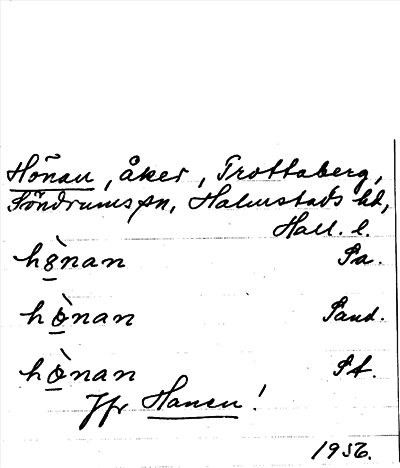 Hönan, åker, Trottaberg,
Söndrums sn, Halmstads hd,
Hall. l.
hò̱nan Sa.
hò̱nan Sand.
hò̱nan St.
Jfr Hanen!
1956.